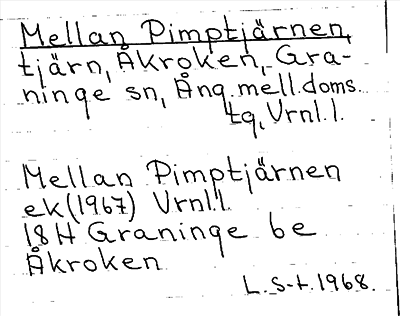 Mellan Pimptjärnen,
tjärn, Åkroken, Gra-
ninge sn, Ång. mell. doms.
tg, Vrnl. l.
Mellan Pimptjärnen
ek (1967) Vrnl. l.
18H Graninge 6e
Åkroken
L. S-t. 1968.